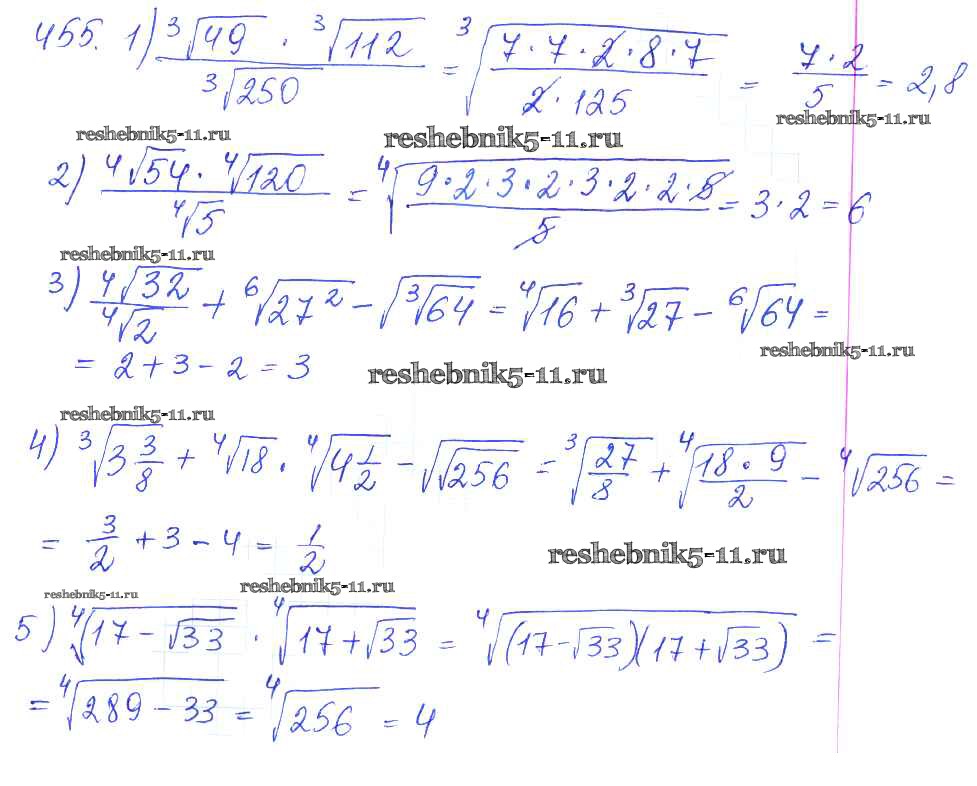 455. 1) ∛49 · ∛112 / ∛250 = ∛(7·7·2·8·7 / 2·125) = 7·2/5 = 2,8
reshebnik5-11.ru reshebnik5-11.ru reshebnik5-11.ru
2) ∜54 · ∜120 / ∜5 = ∜(9·2·3·2·3·2·2·5 / 5) = 3·2 = 6
reshebnik5-11.ru
3) ∜32 / ∜2 + ⁶√27² − √∛64 = ∜16 + ∛27 − ⁶√64 =
reshebnik5-11.ru
= 2 + 3 − 2 = 3
reshebnik5-11.ru
reshebnik5-11.ru
4) ∛(3 3/8) + ∜18 · ∜(4 1/2) − √√256 = ∛(27/8) + ∜(18·9 / 2) − ∜256 =
= 3/2 + 3 − 4 = 1/2
reshebnik5-11.ru
reshebnik5-11.ru reshebnik5-11.ru
5) ∜(17 − √33) · ∜(17 + √33) = ∜((17−√33)(17+√33)) =
= ∜(289 − 33) = ∜256 = 4